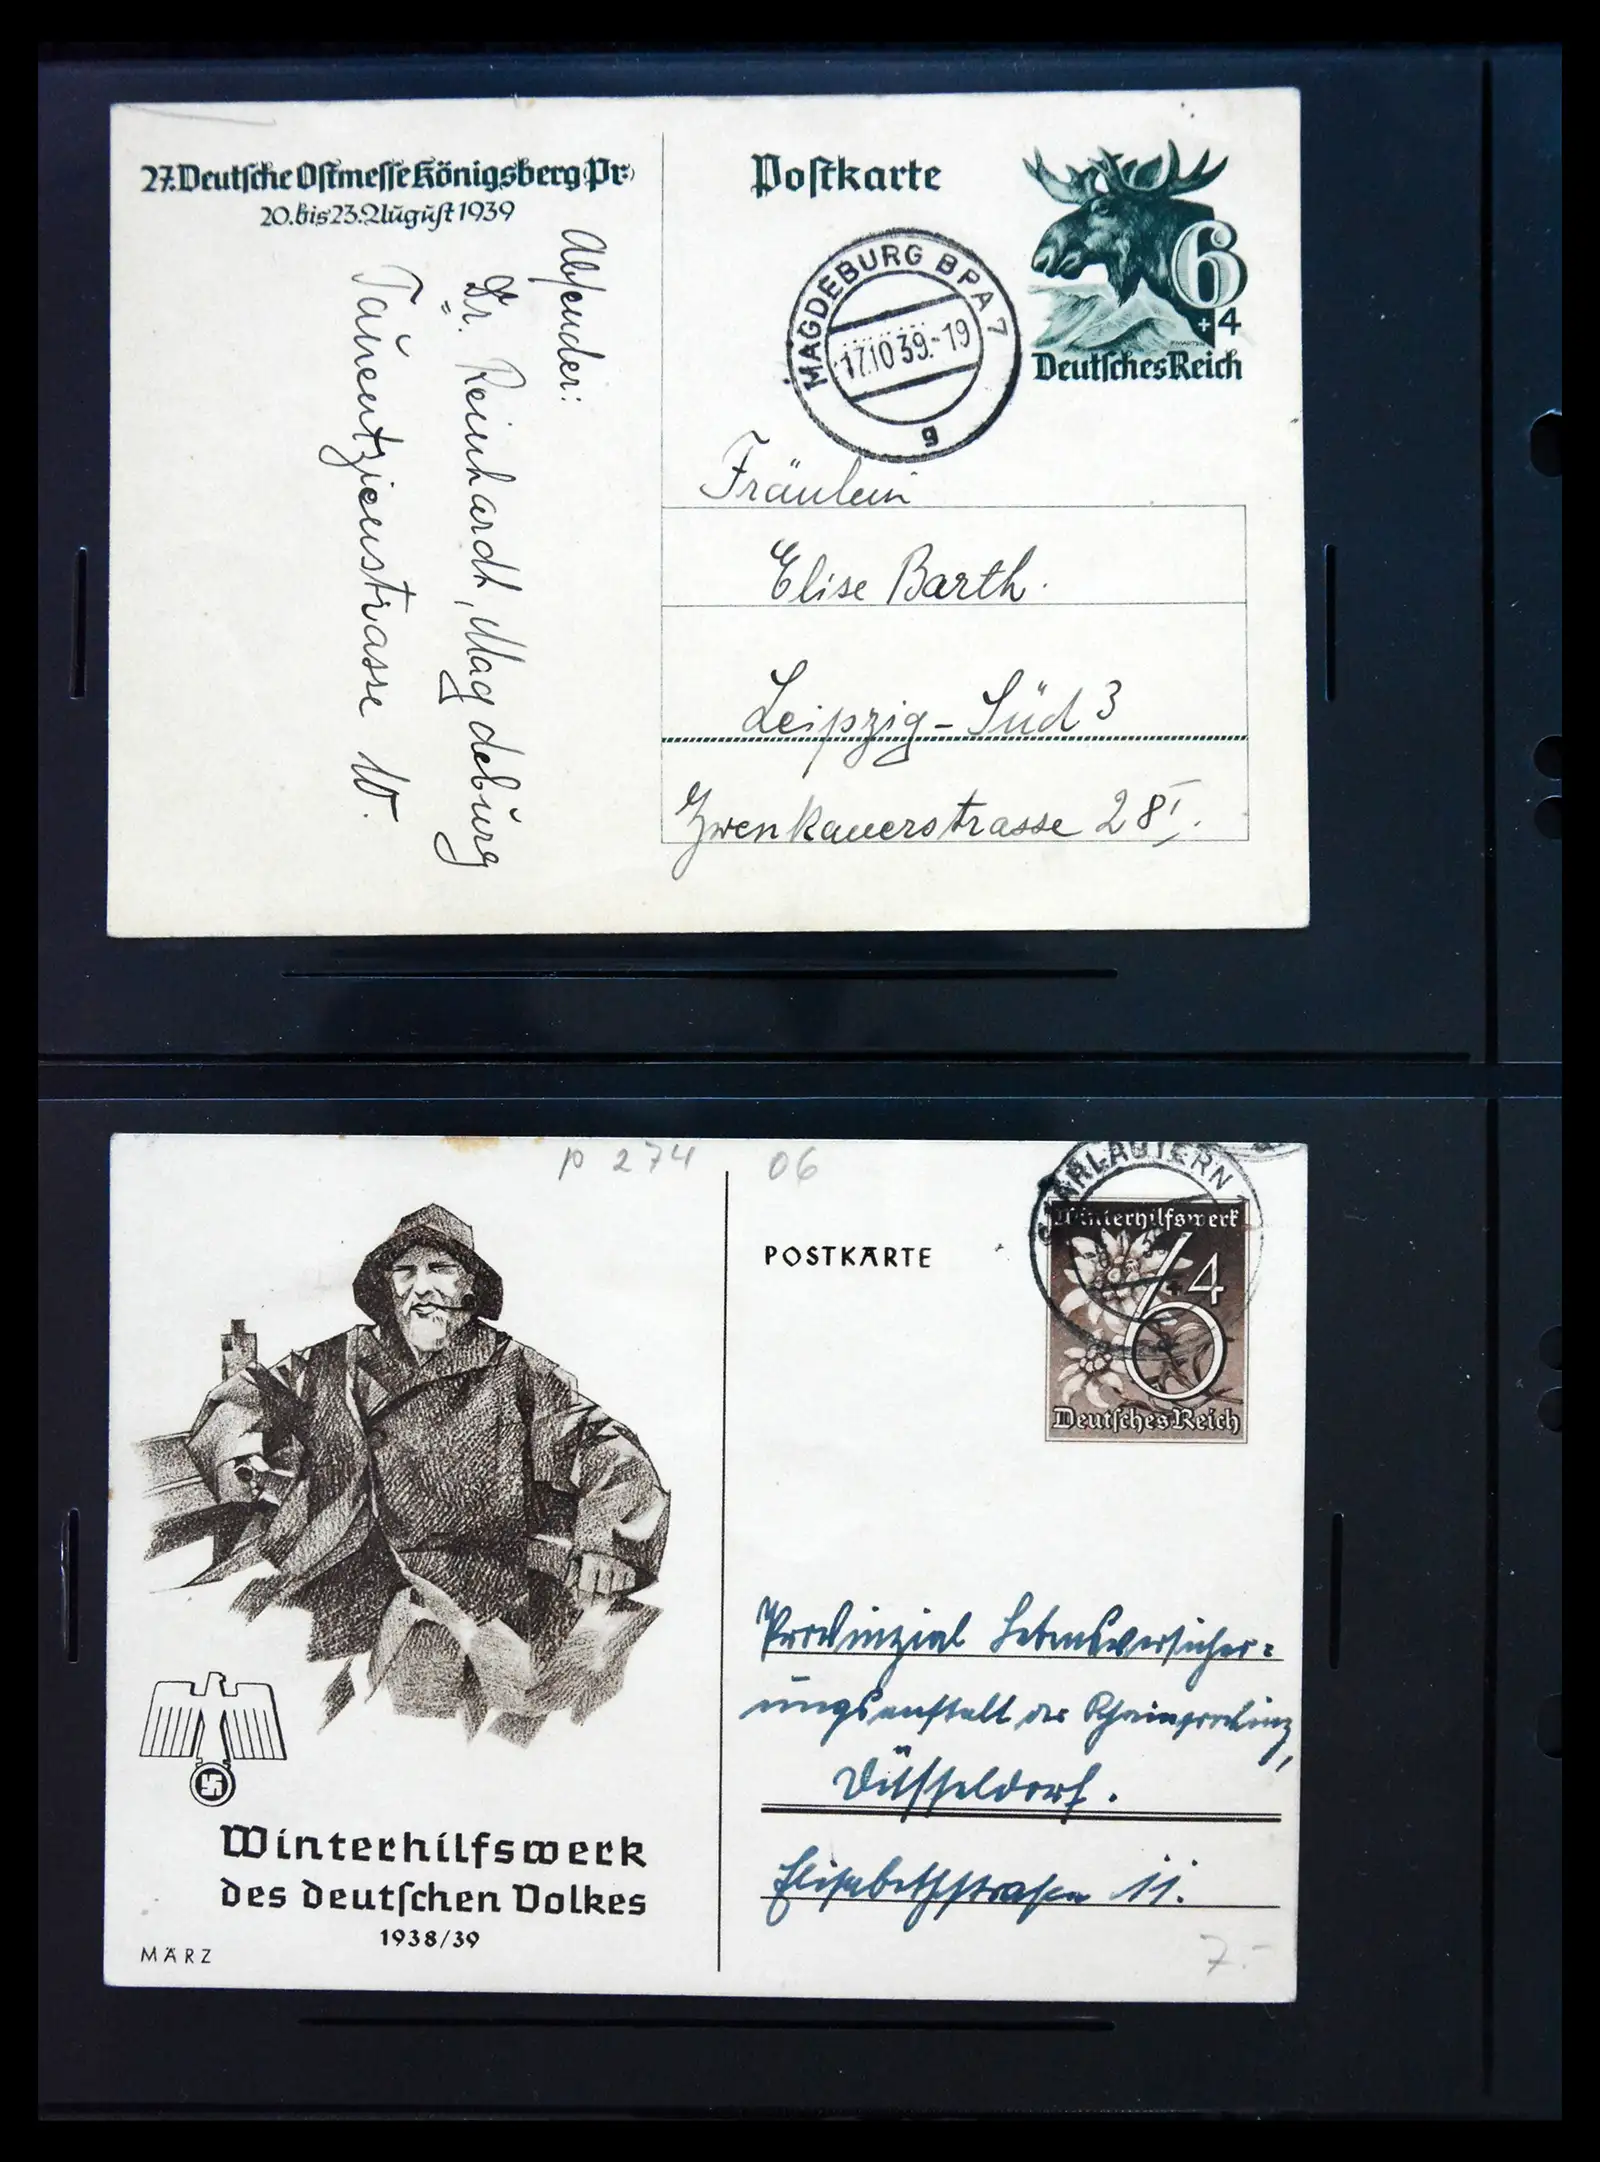 27. Deutsche Ostmesse Königsberg (Pr.)
20. bis 23. August 1939
Absender:
Dr. Reinhardt, Magdeburg
Tauentzienstrasse 10.
Postkarte
6
+4
Deutsches Reich
MAGDEBURG BPA 7
17.10.39.-19
g
Fräulein
Elise Barth.
Leipzig-Süd 3
Zwenkauerstrasse 28 I.
p 274 06
Winterhilfswerk
des Deutschen Volkes
1938/39
MÄRZ
POSTKARTE
SAARLAUTERN
Winterhilfswerk
6+4
Deutsches Reich
Provinzial Lebensversicher=
ungsanstalt der Rheinprovinz,
Düsseldorf.
Elisabethstraße 11.
7.-